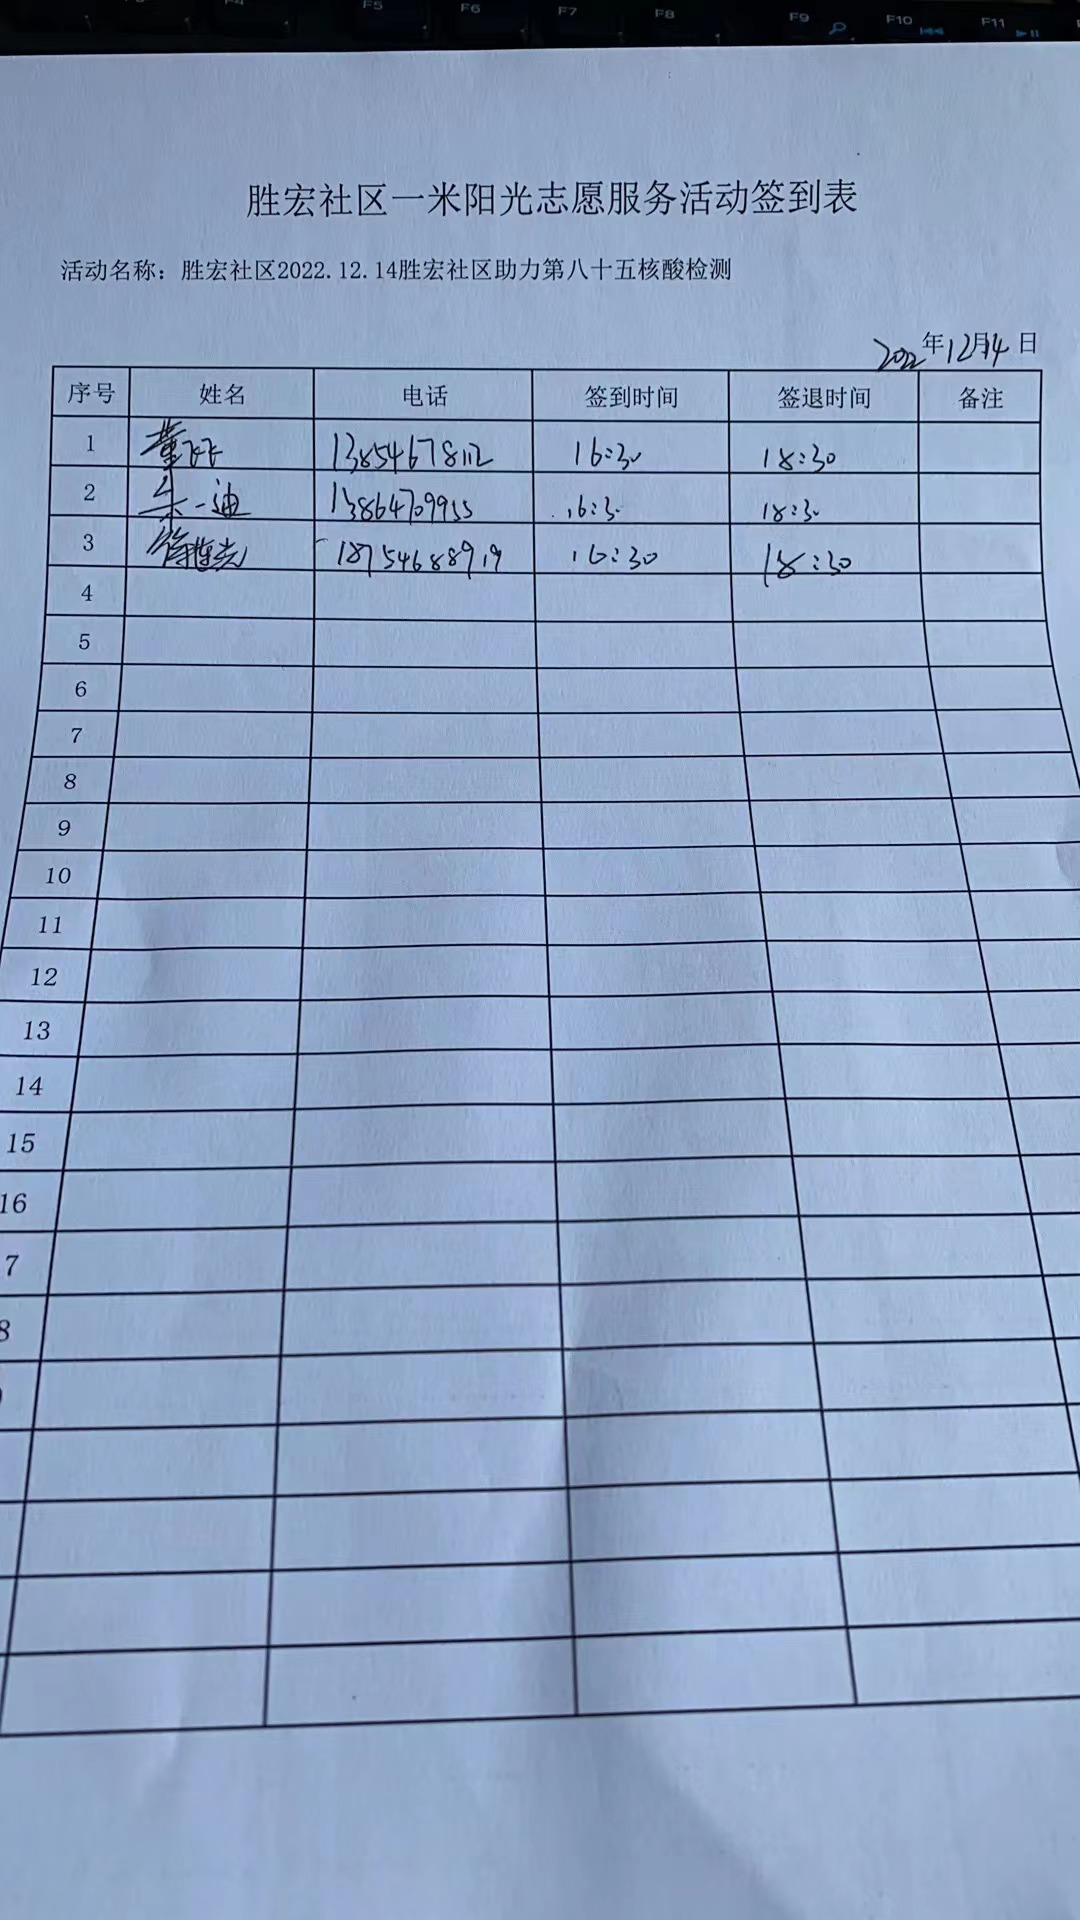 F5 F6 F7 F8 F9 F10 F11
胜宏社区一米阳光志愿服务活动签到表
活动名称：胜宏社区2022.12.14胜宏社区助力第八十五核酸检测
2022年12月14日
序号 姓名 电话 签到时间 签退时间 备注
1 董 13854678112 16:30 18:30
2 朱一迪 13864709955 16:30 18:30
3 18754688919 16:30 18:30
4
5
6
7
8
9
10
11
12
13
14
15
16
7
8